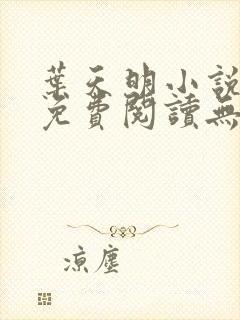 葉天明小說
免費閱讀無
涼塵